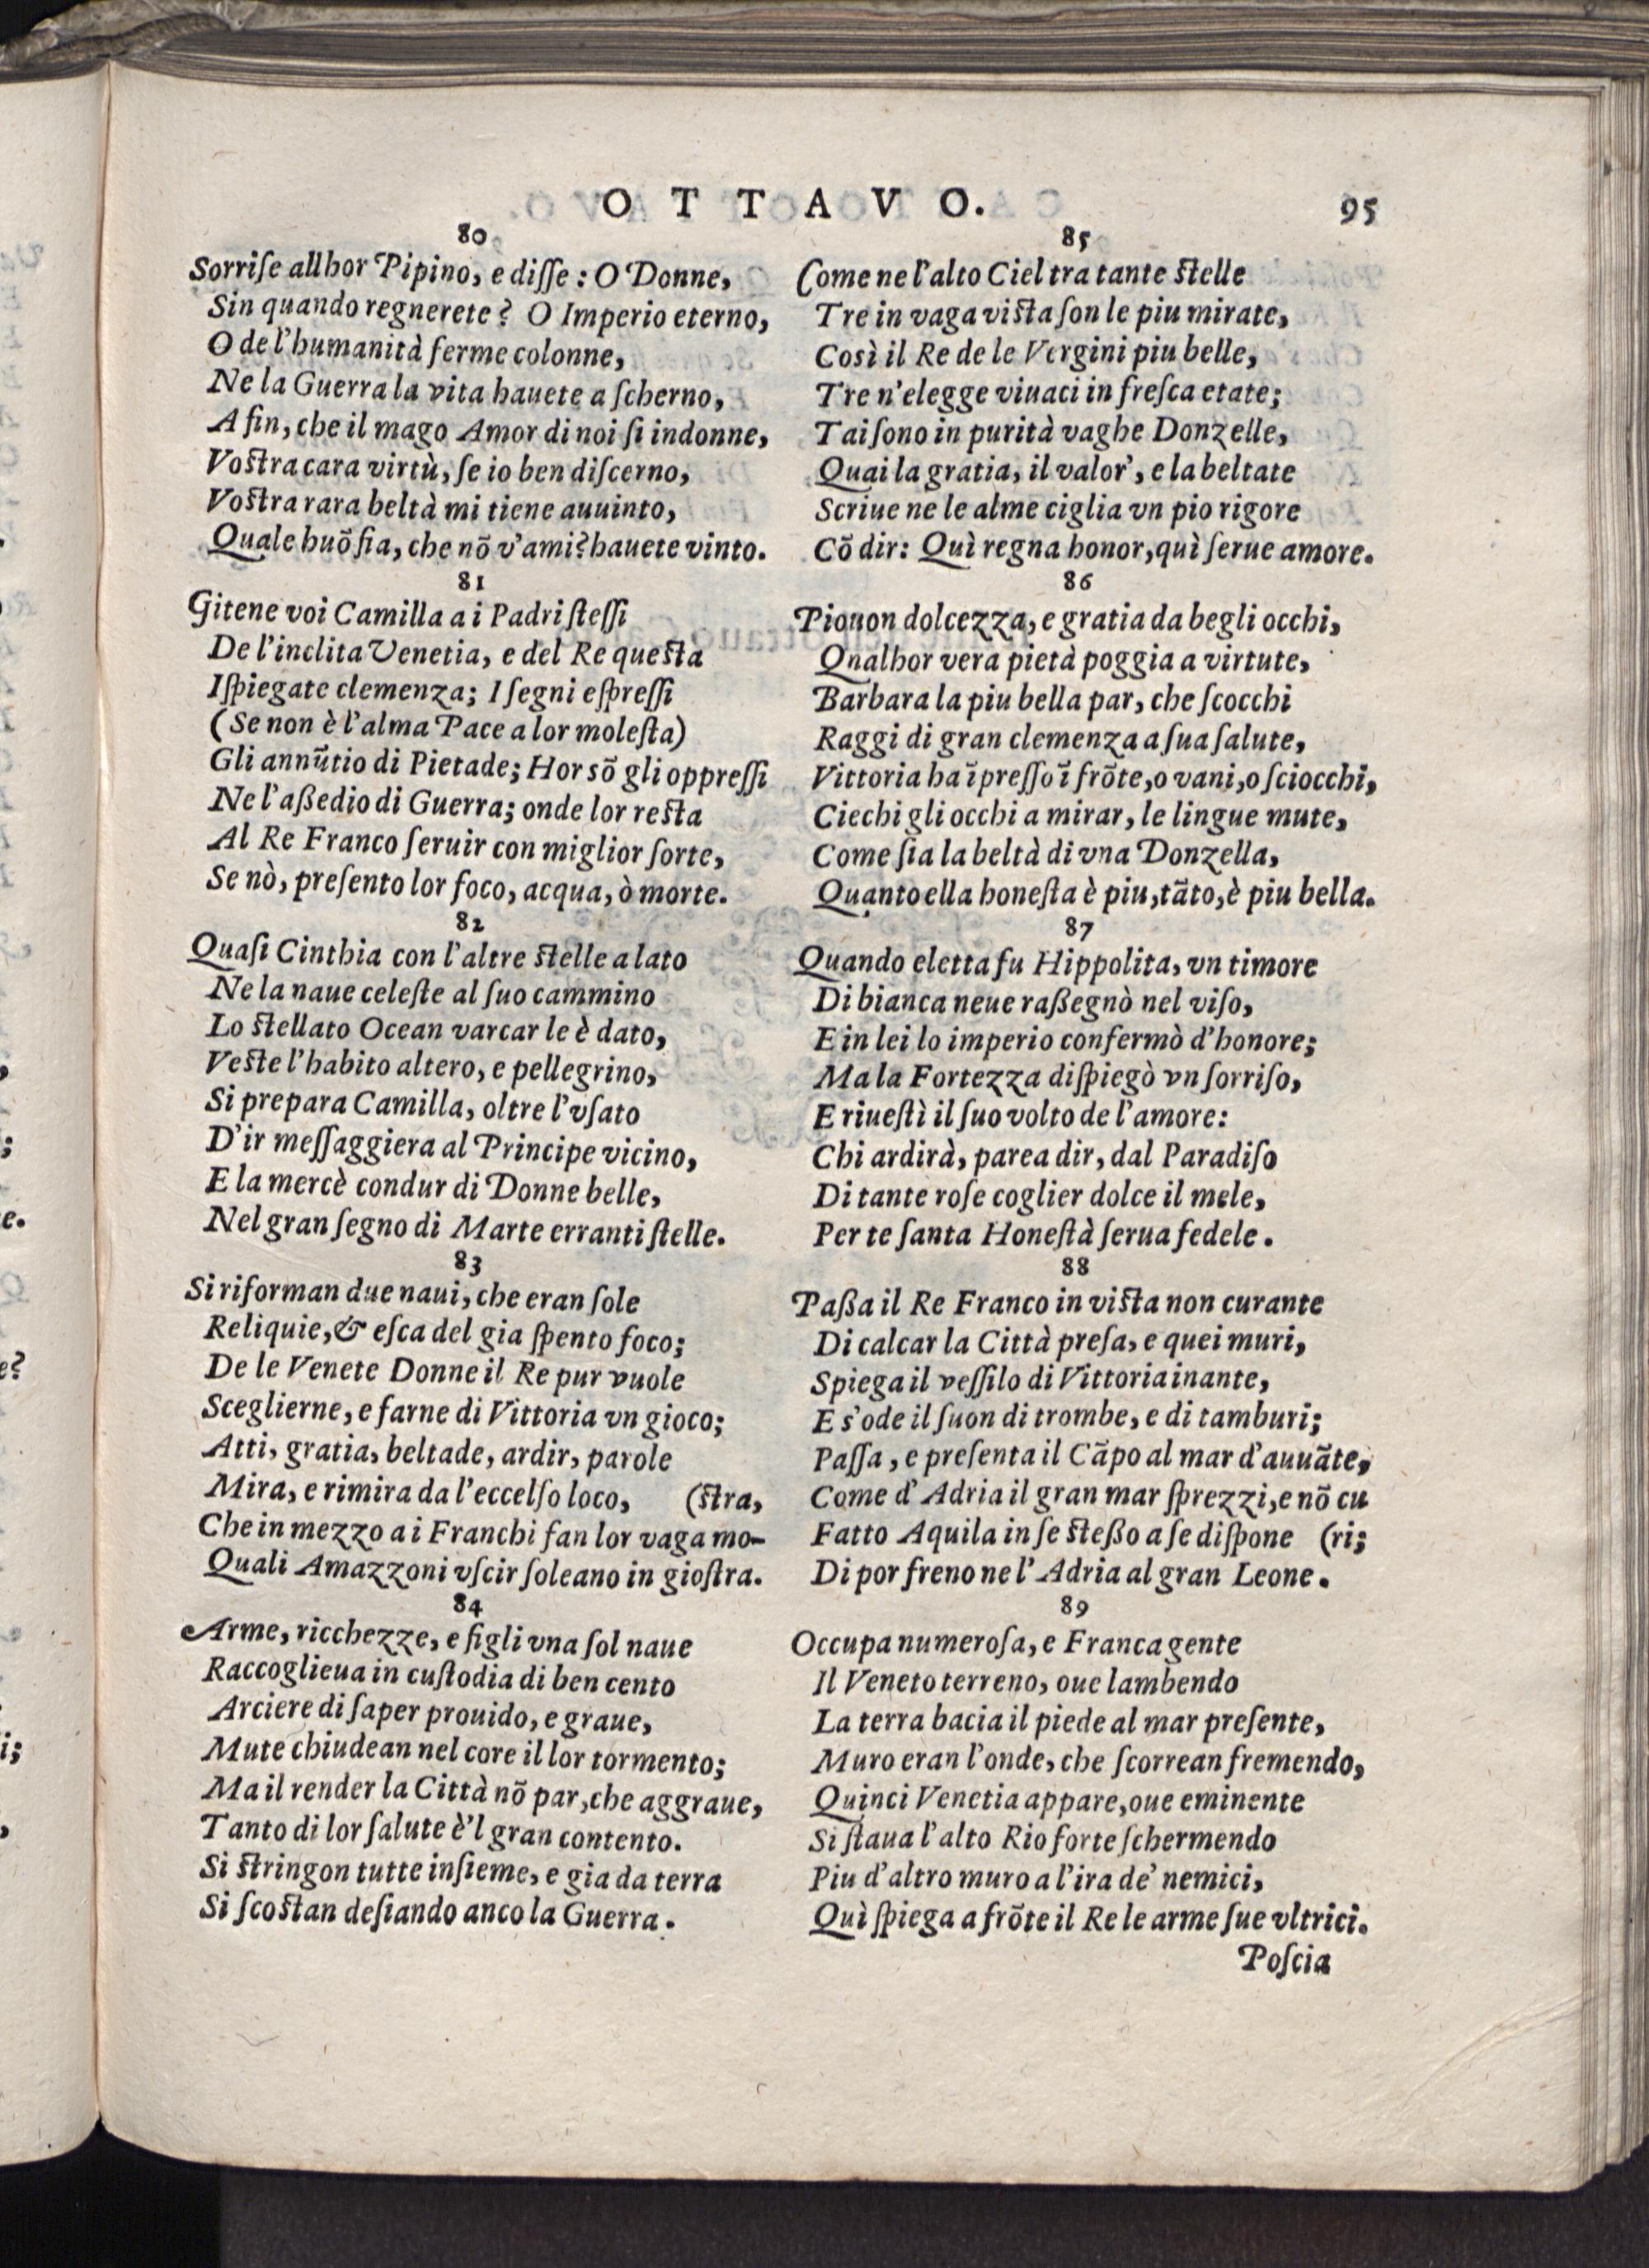 OTTAVO.
95
80
Sorriſe allhor Pipino, e diſſe: O Donne,
Sin quando regnerete? O Imperio eterno,
O de l'humanità ferme colonne,
Ne la Guerra la vita hauete a ſcherno,
A fin, che il mago Amor di noi ſi indonne,
Voſtra cara virtù, ſe io ben diſcerno,
Voſtra rara beltà mi tiene auuinto,
Quale huõ fia, che nõ v'ami? hauete vinto.
81
Gitene voi Camilla a i Padri ſteſſi
De l'inclita Venetia, e del Re queſta
Iſpiegate clemenza; I ſegni eſpreſſi
(Se non è l'alma Pace a lor moleſta)
Gli annũtio di Pietade; Hor sõ gli oppreſſi
Ne l'aßedio di Guerra; onde lor reſta
Al Re Franco ſeruir con miglior ſorte,
Se nò, preſento lor foco, acqua, ò morte.
82
Quaſi Cinthia con l'altre ſtelle a lato
Ne la naue celeſte al ſuo cammino
Lo ſtellato Ocean varcar le è dato,
Veſte l'habito altero, e pellegrino,
Si prepara Camilla, oltre l'vſato
D'ir meſſaggiera al Principe vicino,
E la mercè condur di Donne belle,
Nel gran ſegno di Marte erranti ſtelle.
83
Si riforman due naui, che eran ſole
Reliquie, & eſca del gia ſpento foco;
De le Venete Donne il Re pur vuole
Sceglierne, e farne di Vittoria vn gioco;
Atti, gratia, beltade, ardir, parole
Mira, e rimira da l'eccelſo loco, (ſtra,
Che in mezzo a i Franchi fan lor vaga mo-
Quali Amazzoni vſcir ſoleano in gioſtra.
84
Arme, ricchezze, e figli vna ſol naue
Raccoglieua in cuſtodia di ben cento
Arciere di ſaper prouido, e graue,
Mute chiudean nel core il lor tormento;
Ma il render la Città nõ par, che aggraue,
Tanto di lor ſalute è'l gran contento.
Si ſtringon tutte inſieme, e gia da terra
Si ſcoſtan deſiando anco la Guerra.
85
Come ne l'alto Ciel tra tante ſtelle
Tre in vaga viſta ſon le piu mirate,
Così il Re de le Vergini piu belle,
Tre n'elegge viuaci in freſca etate;
Tai ſono in purità vaghe Donzelle,
Quai la gratia, il valor', e la beltate
Scriue ne le alme ciglia vn pio rigore
Cõ dir: Quì regna honor, quì ſerue amore.
86
Piouon dolcezza, e gratia da begli occhi,
Qnalhor vera pietà poggia a virtute,
Barbara la piu bella par, che ſcocchi
Raggi di gran clemenza a ſua ſalute,
Vittoria ha ĩpreſſo ĩ frõte, o vani, o ſciocchi,
Ciechi gli occhi a mirar, le lingue mute,
Come ſia la beltà di vna Donzella,
Quanto ella honeſta è piu, tãto, è piu bella.
87
Quando eletta fu Hippolita, vn timore
Di bianca neue raßegnò nel viſo,
E in lei lo imperio confermò d'honore;
Ma la Fortezza diſpiegò vn ſorriſo,
E riueſtì il ſuo volto de l'amore:
Chi ardirà, parea dir, dal Paradiſo
Di tante roſe coglier dolce il mele,
Per te ſanta Honeſtà ſerua fedele.
88
Paßa il Re Franco in viſta non curante
Di calcar la Città preſa, e quei muri,
Spiega il veſſilo di Vittoria inante,
E s'ode il ſuon di trombe, e di tamburi;
Paſſa, e preſenta il Cãpo al mar d'auuãte,
Come d'Adria il gran mar ſprezzi, e nõ cu
Fatto Aquila in ſe ſteßo a ſe diſpone (ri;
Di por freno ne l'Adria al gran Leone.
89
Occupa numeroſa, e Franca gente
Il Veneto terreno, oue lambendo
La terra bacia il piede al mar preſente,
Muro eran l'onde, che ſcorrean fremendo,
Quinci Venetia appare, oue eminente
Si ſtaua l'alto Rio forte ſchermendo
Piu d'altro muro a l'ira de' nemici,
Quì ſpiega a frõte il Re le arme ſue vltrici.
Poſcia